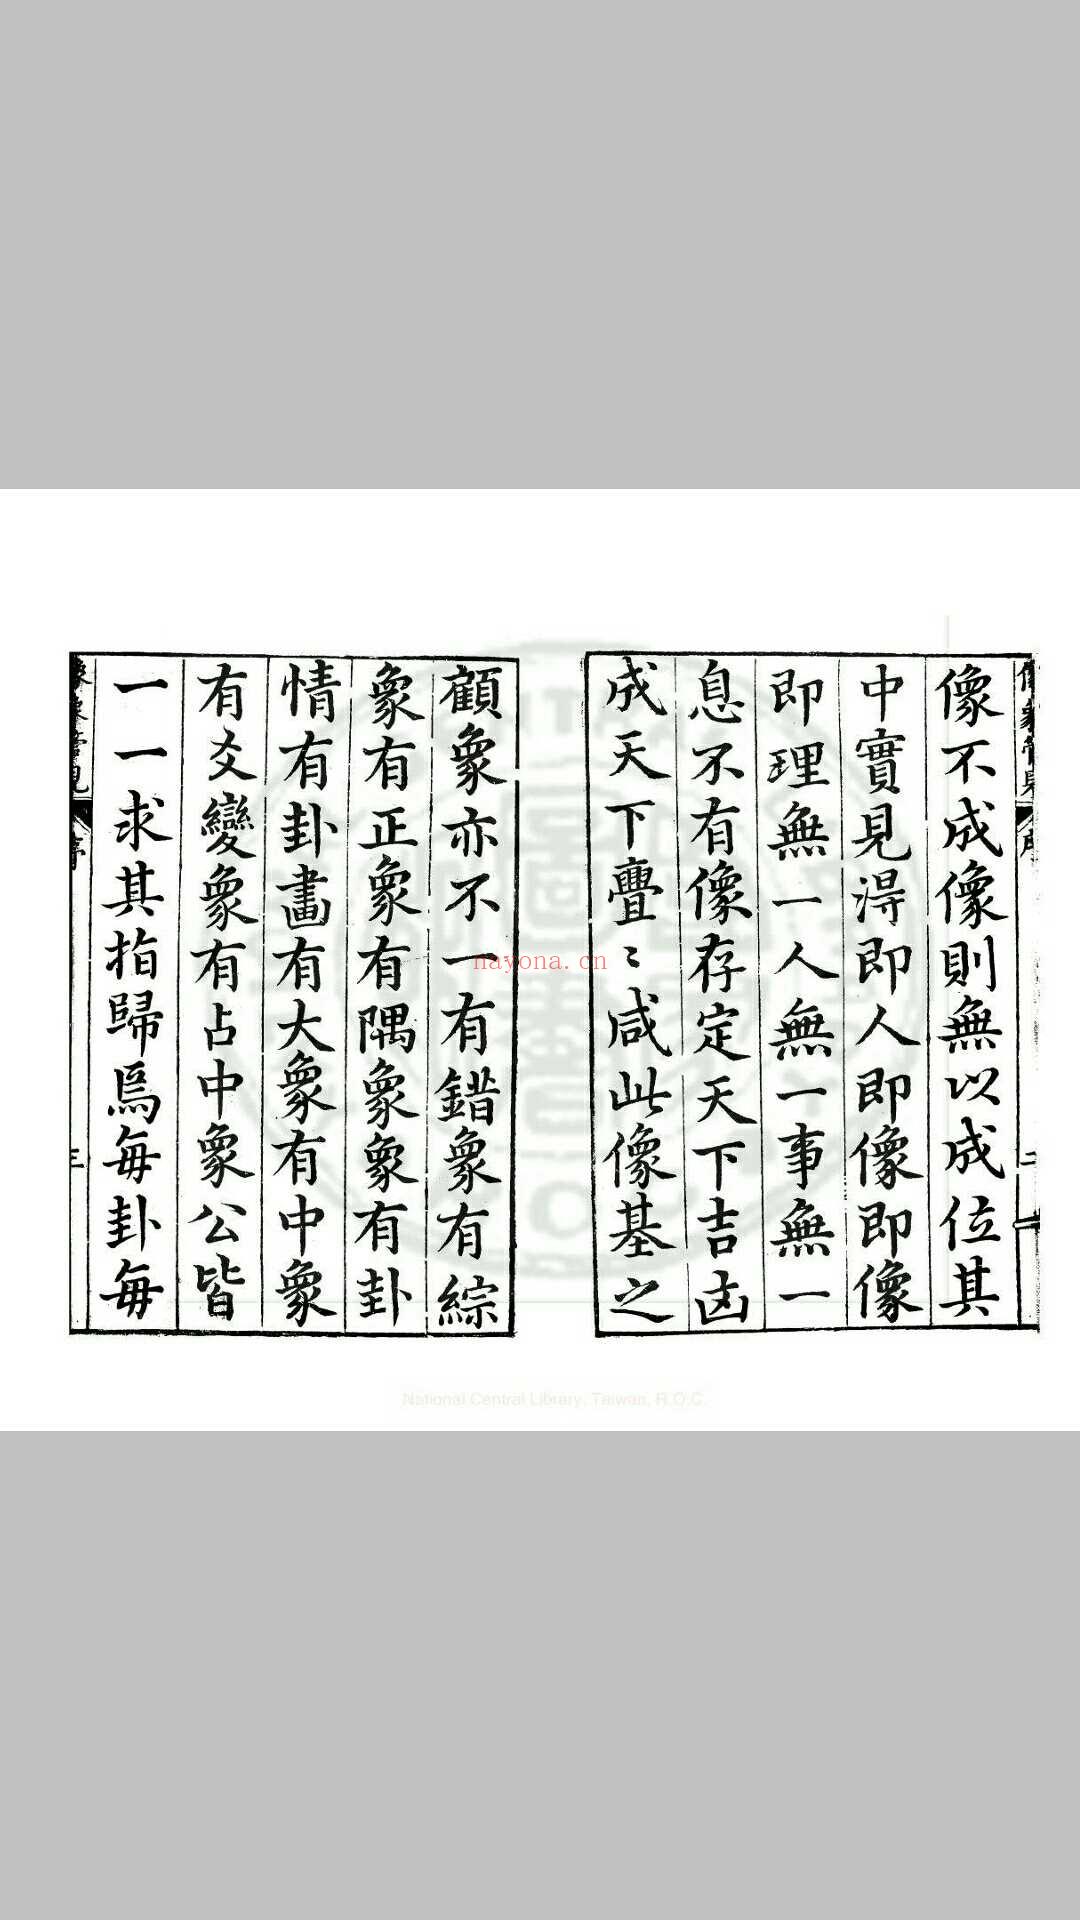 像象管見
序
二
像不成像則無以成位其
中實見淂即人即像即像
即理無一人無一事無一
息不有像存定天下吉凶
成天下亹〻咸此像基之
顧象亦不一有錯象有綜
象有正象有隅象象有卦
情有卦畫有大象有中象
有爻變象有占中象公皆
一一求其指歸焉每卦每
像象管見
序
三
nayona.cn
National Central Library, Taiwan, R.O.C.